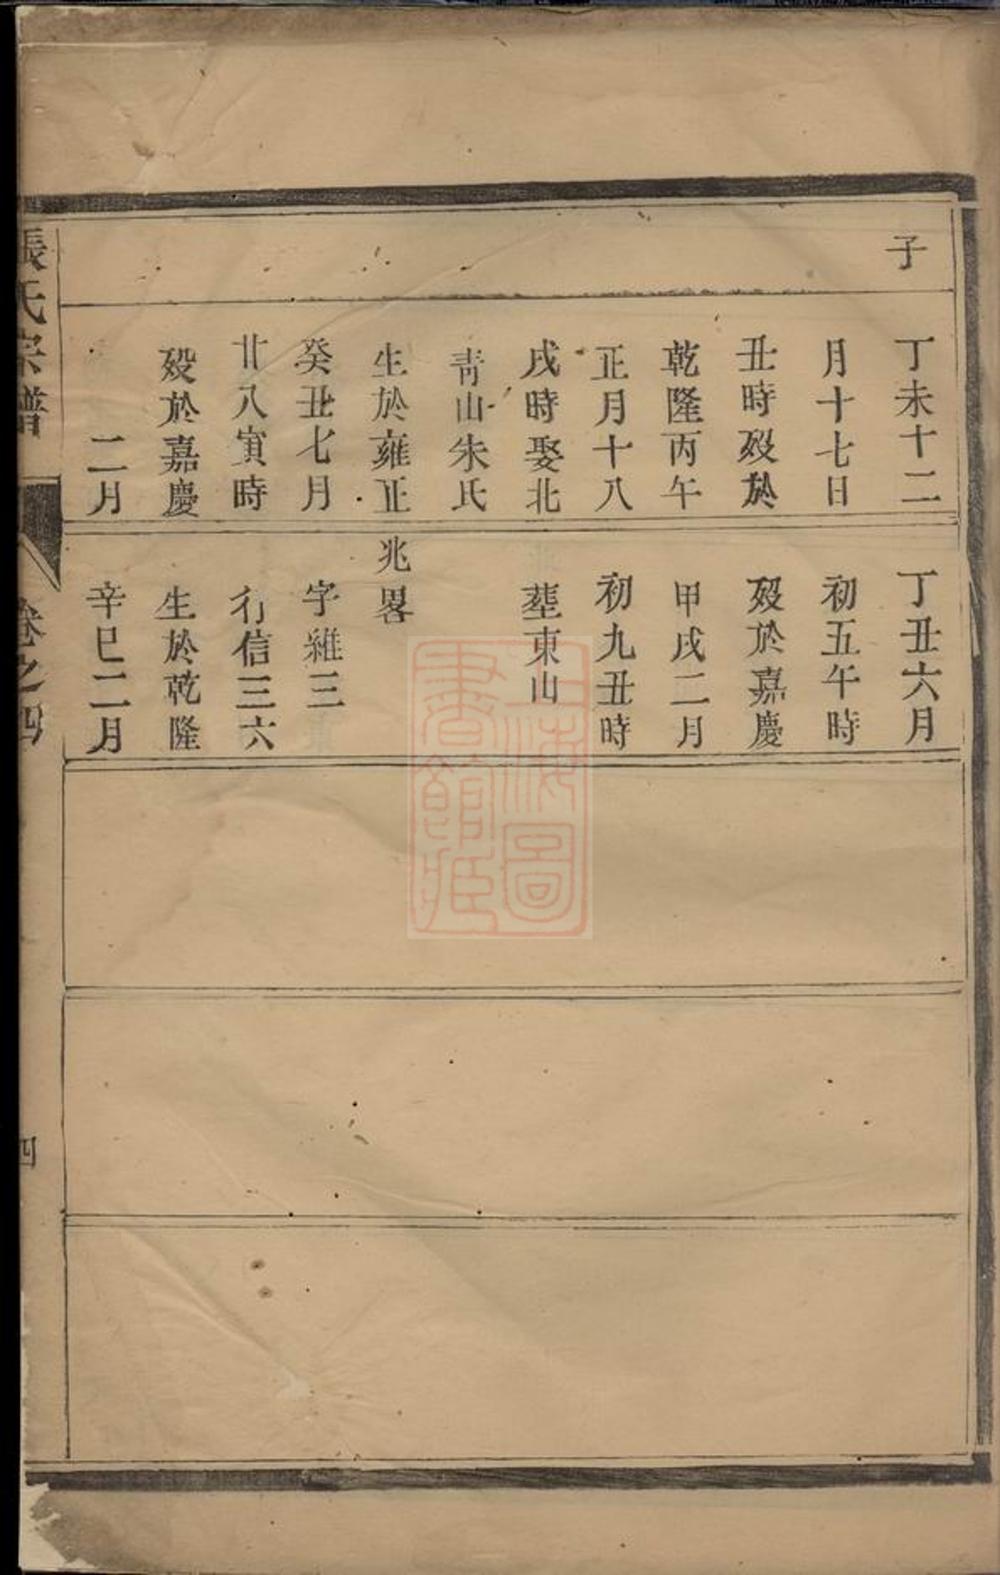 子
丁未十二
月十七日
丑時殁於
乾隆丙午
正月十八
戌時娶北
靑山朱氏
生於雍正
癸丑七月
廿八寅時
殁於嘉慶
二月
丁丑六月
初五午時
殁於嘉慶
甲戌二月
初九丑時
塟東山
兆畧
字維三
行信三六
生於乾隆
辛巳二月
張氏宗譜
卷之四
四
上海圖
書館藏